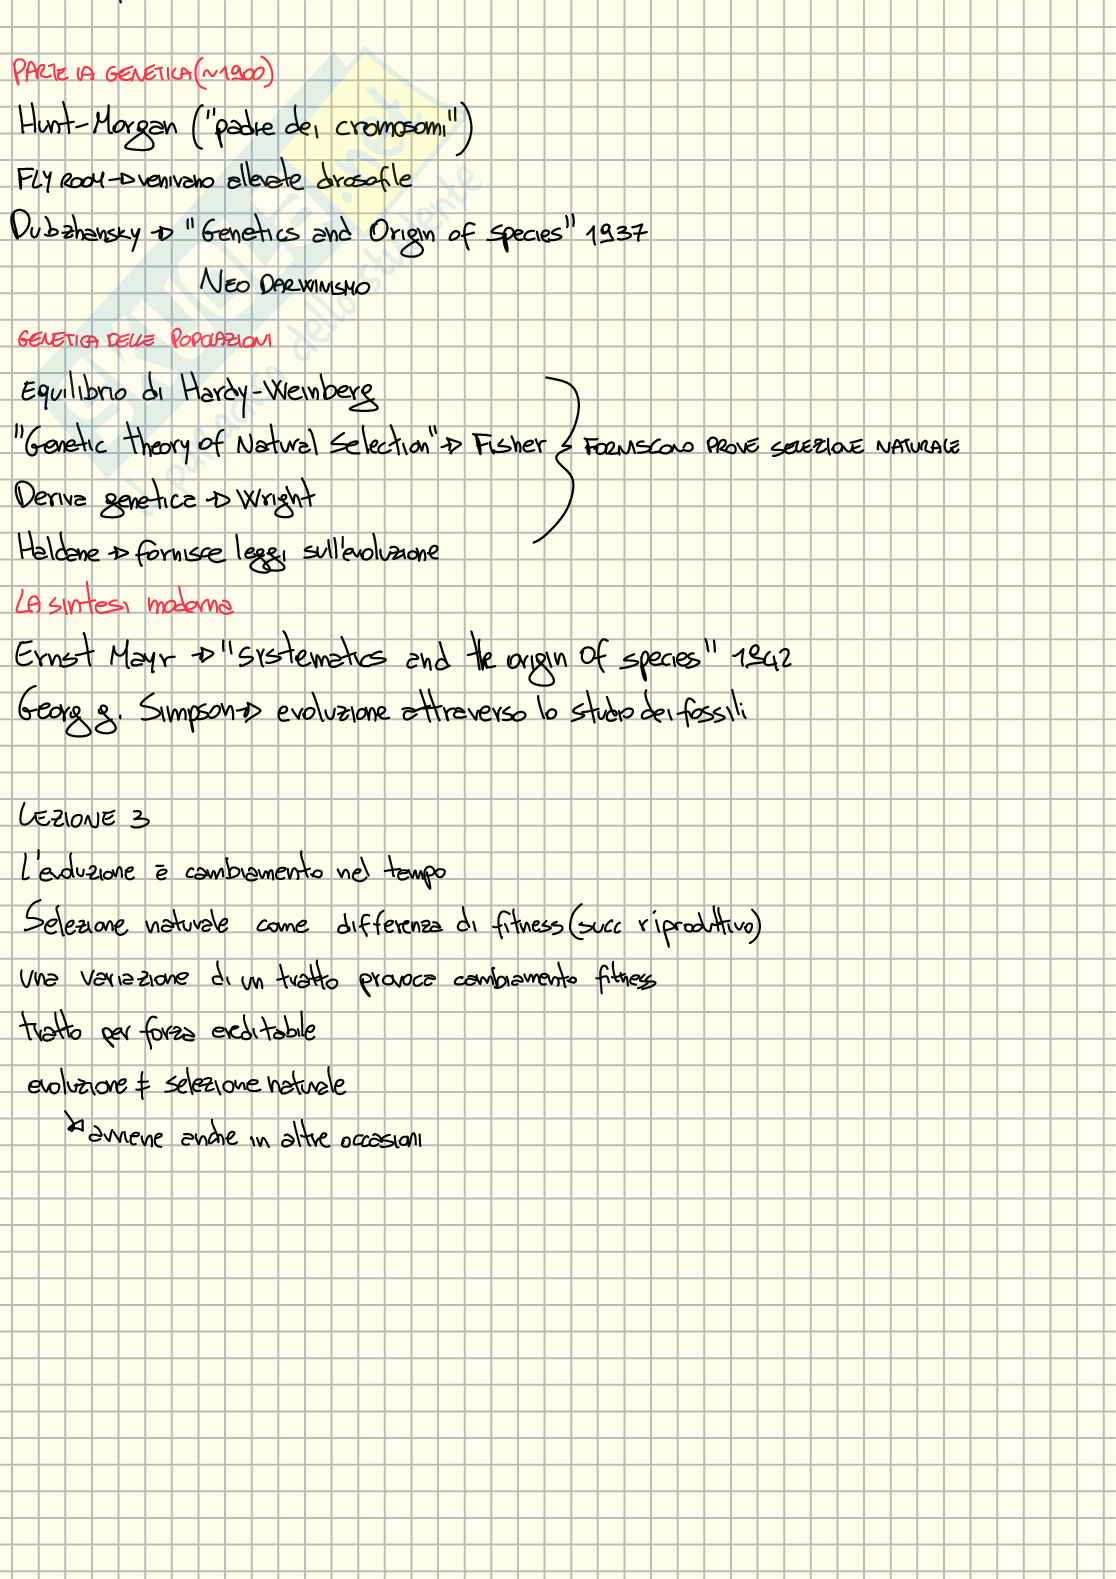 PARTE LA GENETICA (~1900)
Hunt-Morgan ("padre dei cromosomi")
FLY ROOM → venivano allevate drosofile
Dubzhansky → "Genetics and Origin of species" 1937
NEO DARWINISMO
GENETICA DELLE POPOLAZIONI
Equilibrio di Hardy-Weinberg
"Genetic theory of Natural Selection" → Fisher } FORNISCONO PROVE SELEZIONE NATURALE
Deriva genetica → Wright
Haldane → fornisce leggi sull'evoluzione
LA sintesi moderna
Ernst Mayr → "systematics and the origin of species" 1942
Georg g. Simpson → evoluzione attraverso lo studio dei fossili
LEZIONE 3
L'evoluzione è cambiamento nel tempo
Selezione naturale come differenza di fitness (succ riproduttivo)
una variazione di un tratto provoca cambiamento fitness
tratto per forza ereditabile
evoluzione ≠ selezione naturale
↘ avviene anche in altre occasioni
SKUOLA.net
il paradiso dello studente